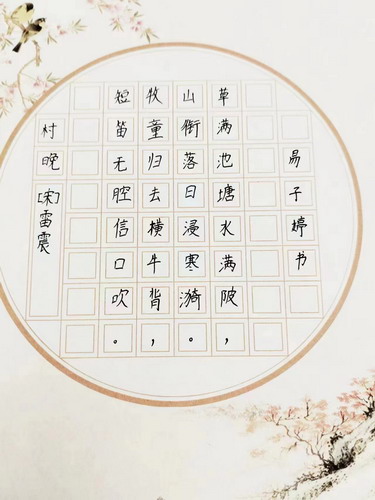 易子婷书
草满池塘水满陂，
山衔落日浸寒漪。
牧童归去横牛背，
短笛无腔信口吹。
村晚[宋]雷震